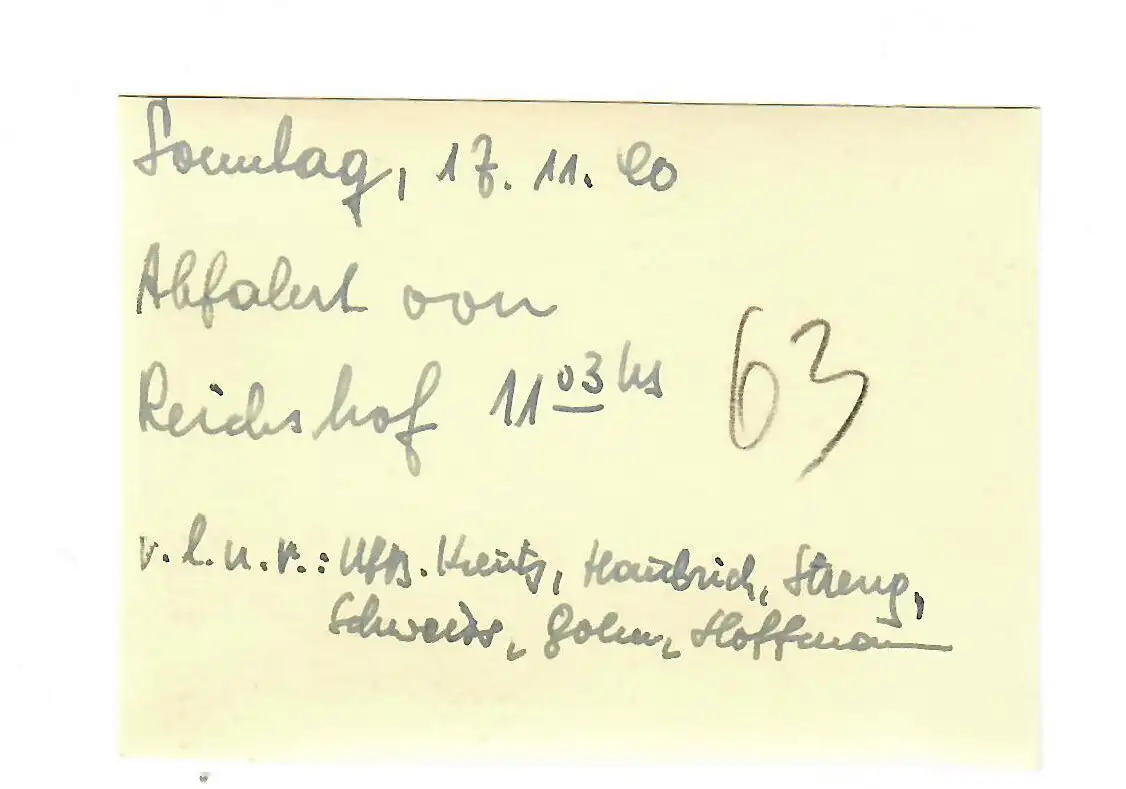 Sonntag, 17. 11. 40
Abfahrt von
Reichshof 11 03 hs
63
v. l. n. r.: Uffz. Kreutz, Haubrich, Streng,
Hoffmann